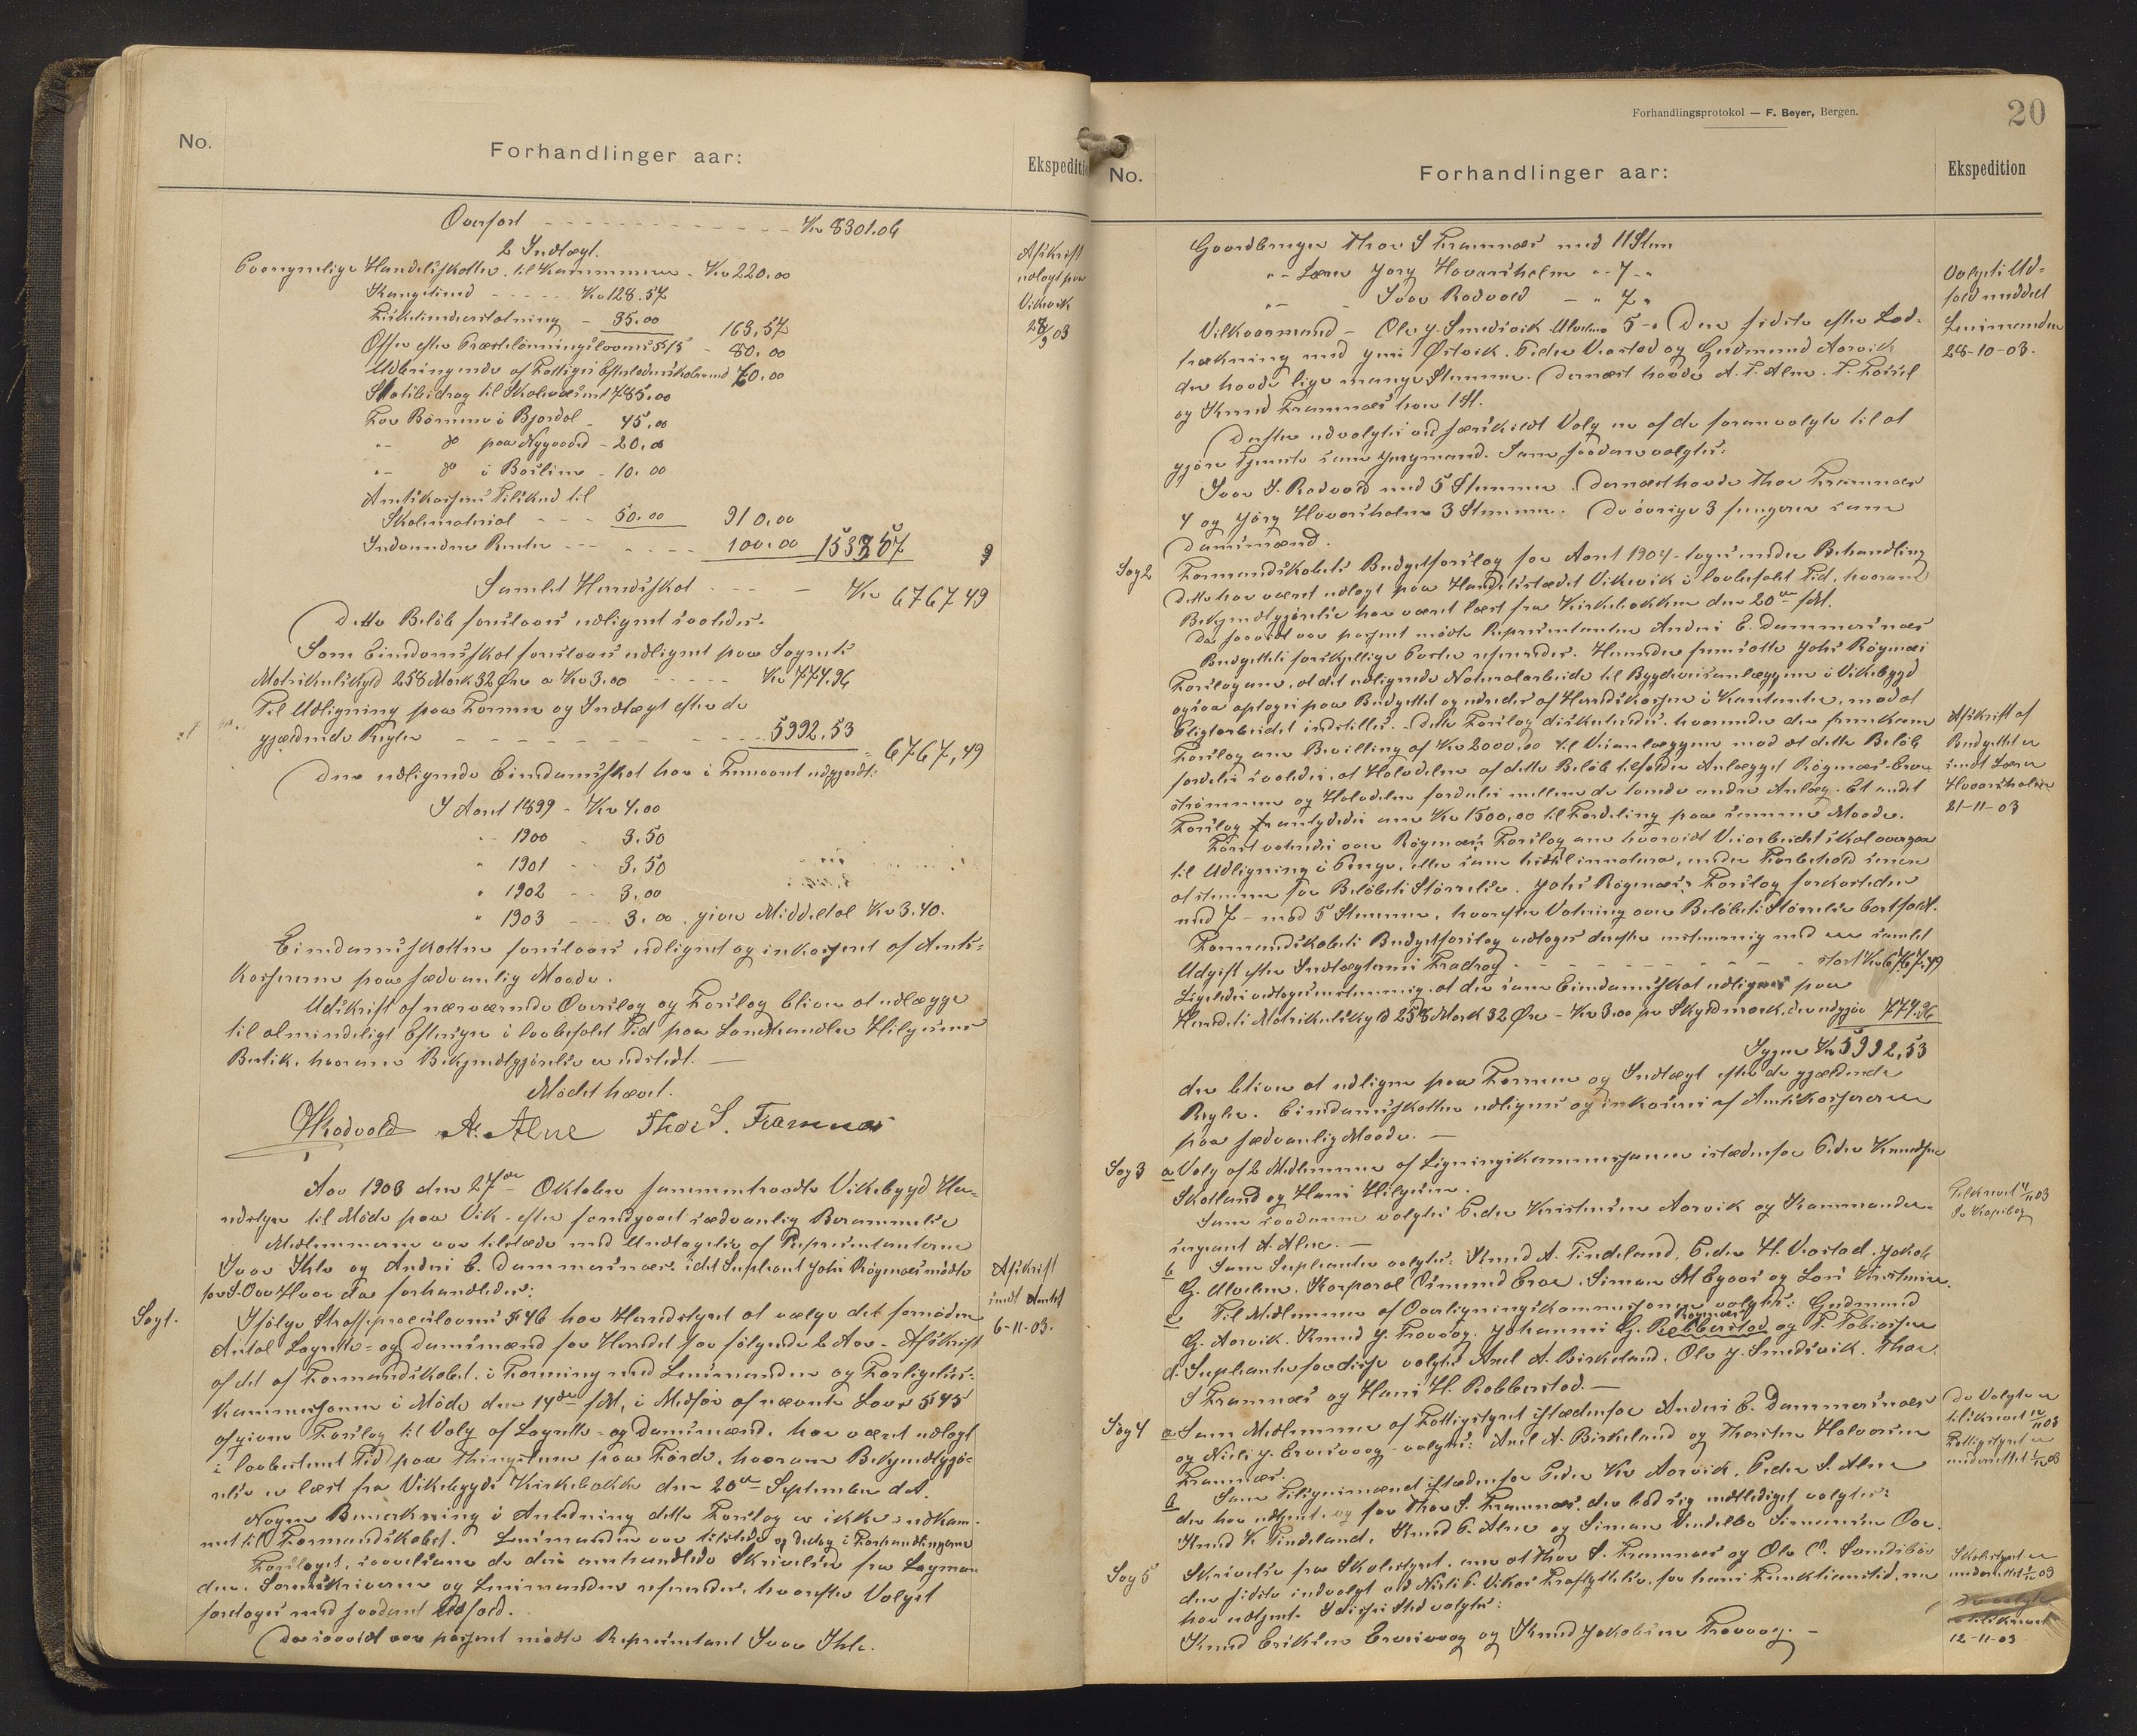 No.
Forhandlinger aar:
Ekspediti
Overført - - - - Kr 8301.06
2 Indtægt.
Handelsskatter til Kommunen - Kr 220.00
- - - Kr 128.57
- 35.00 163.57
Efter 80.00
70.00
Statsbidrag til Skolevæsenet 785.00
For Børnene i Bjordal - 45.00
" do paa Nygaard - 20.00
" do i Boslinn - 10.00
Amtskassens Tilskud til
Skolemateriel - - - 50.00 910.00
Renter - - - - - 100.00
Samlet Herredsskat - - - Kr 6767.49
Dette Beløb foreslaaes udlignet saaledes.
Som Eiendomsskat foreslaaes udlignet paa Sognets
Matrikulskyld 258 Mark 32 Øre a Kr 3.00 - - - - Kr 774.96
Til Udligning paa Formue og Indtægt efter de
gjældende Regler - - - - 5992.53
6767,49
Den udlignede Eiendomsskat har i Femaaret udgjordt:
I Aaret 1899 - Kr 4.00
" 1900 - 3.50
" 1901 - 3.50
" 1902 - 3.00
" 1903 - 3.00 giver Middeltal Kr 3.40.
Eiendomsskatten foreslaaes udlignet og inkasseret af Amts-
kassereren paa sædvanlig Maade.
Udskrift af nærværende Overslag og Forslag bliver at udlægge
til almindeligt Eftersyn i lovbefalet Tid paa Landhandler Hilgesens
Butik, hvorom Bekjendtgjørelse er udstedt. -
Mødet hævet.
A. Alne Thor S. Framnæs
Afskrift
udlagt paa
Vikevik
28/9 03
Aar 1903 den 27de Oktober sammentraadte Vikebygd He-
redstyre til Møde paa Vik - efter forudgaaet sædvanlig Berammelse
Medlemmerne var tilstede med Undtagelse af Repræsentanterne
Ivar Ihle og Andres E. Dommersnæs, idet Supleant Johs Røgenæs mødte
for S. Hvor da forhandledes:
Sag 1. Ifølge Straffeproceslovens § 46 har Herredstyret at vælge det fornødne
Antal Lagrette- og Domsmænd for Herredet for følgende 2 Aar - Afskrift
af det af Formandskabet, i Forening med Lensmanden og Forligelses-
kommissionen i Møde den 14de sM, i Medfør af nævnte Lovs § 45
afgivne Forslag til Valg af Lagrette- og Domsmænd, har været udlagt
i lovbestemt Tid paa Thingstuen paa Førde, hvorom Bekjendtgjø-
relse er læst fra Vikebygds Kirkebakke den 20de September d.A.
Nogen Bemerkning i Anledning dette Forslag er ikke indkom-
met til Formandskabet. Lensmanden var tilstede og deltog i Forhandlingerne
Forslaget, saavelsom de desangaaende Skrivelser fra Lagman-
den, Sorenskriveren og Lensmanden refereredes, hvorefter Valget
foretoges med saadant Udfald.
Da saavidt var passeret mødte Repræsentant Ivar Ihle.
Afskrift
sendt Amtet
6-11-03.
Forhandlingsprotokol — F. Beyer, Bergen.
20
No.
Forhandlinger aar:
Ekspedition
Gaardbruger Thor S Framnæs med 11 Stm
" - Lærer Jørg Hovarsholm " - 7 - "
" - - Ivar Rodvold - " 7 "
Vilkaarmand - Ole J. Smedsvik 5 - " Den sidste efter Lod-
trækning med Ørtvik. Peder Vrastad og Gudmund Aarvik
der havde lige mange Stemmer. Dernæst havde A. T. Alne. T.
og Knud Framnæs hver 1 St.
Derefter udvalgtes ved særskildt Valg en af de foranvalgte til at
gjøre Tjeneste som Jurymand. Som saadan valgtes:
Ivar J. Rodvold med 5 Stemmer. Dernæst havde Thor Framnæs
4 og Jørg Hovarsholm 3 Stemmer. De øvrige 3 fungerer som
Domsmænd.
Valgets Ud-
fald meddelt
Lensmanden
28-10-03.
Sag 2 Formandskabets Budgetforslag for Aaret 1904 - toges under Behandling
Dette har været udlagt paa Handelsstedet Vikevik i lovbefalet Tid, hvorom
Bekjendtgjørelse har været læst fra Kirkebakken den 20de sM.
Da saavidt var passeret mødte Repræsentanten Andres E. Dommersnæs
Budgettets forskjellige Poster refereredes. Herunder fremsatte Johs Røgenæs
Forslag om, at det udlignede Naturalarbeide til Bygdeveisanlæggene i Vikebygd
ogsaa optages paa Budgettet og udredes af Herredskassen i Kontanter, mod at
Pligtarbeidet indstilles. - Dette Forslag diskuteredes, hvorunder der fremkom
Forslag om Bevilling af Kr 2000,00 til Veianlæggene mod at dette Beløb
fordeles saaledes, at Halvdelen af dette Beløb tilfalder Anlægget Røgenæs-
strømmen og Halvdelen fordeles mellem de tvende andre Anlæg. Et andet
Forslag antydedes om Kr 1500,00 til Fordeling paa samme Maade.
Først voteredes over Røgenæs's Forslag om hvorvidt Veiarbeidet skal overgaa
til Udligning i Penge, eller som hidtil innatura, under Forbehold senere
at stemme for Beløbets Størrelse. Johs Røgenæs's Forslag forkastedes
med 7 - mod 5 Stemmer, hvorefter Votering over Beløbets Størrelse bortfaldt.
Formandskabets Budgetforslag vedtoges derefter enstemmig med en samlet
Udgift efter Indtægternes Fradrag - - - - stort Kr 6767.49
Ligeledes vedtoges enstemmig, at der som Eiendomsskat udlignes paa
Herredets Matrikulskyld 258 Mark 32 Øre - Kr 3.00 pr Skyldmark, der udgjør 774.96
Igjen Kr 5992,53
der bliver at udligne paa Formue og Indtægt efter de gjældende
Regler. Eiendomsskatten udlignes og inkaseres af Amtskassereren
paa sædvanlig Maade. -
Afskrift af
Budgettet er
sendt Lærer
Hovarsholm
21-11-03
Sag 3 a Valg af 2 Medlemmer af Ligningskommissionen istedenfor Peder Knudsen
Skotland og Hans Hilgesen.
Som saadanne valgtes Peder Kristensen Aarvik og Kommander-
sergeant A. Alne. -
b Som Supleanter valgtes: Knud A. Tindeland, Peder H. Vrastad, Jakob
G. Ulveten, Korporal Osmund Eroe, Simon M Egaas og Lars Kristensen.
c Til Medlemmer af Overligningskommissionen valgtes: Gudmund
G. Aarvik. Knud J. Frovaag. Johannes G. Røgenæs Robberstad og T. Tobiassen
d. Supleanter for disse valgtes Axel A. Birkeland, Ole J. Smedsvik, Thor
S Framnæs og Hans H. Robberstad. -
Tilskrevet 4/11 03
Sag 4 a Som Medlemmer af Fattigstyret istedenfor Andres E. Dommersnæs
og Nils J. valgtes: Axel A. Birkeland og Thorsten Halvorsen
Framnæs.
b Som Tilsynsmænd istedenfor Peder Kr Aarvik, Peder S. Alne
der har udtjent, og for Thor S. Framnæs, der bad sig undtlediget valgtes:
Knud K Tindeland, Knud P. Alne og Simon Simonsen
De Valgte er
tilskrevet 12/11 03
Fattigstyret er
underrettet
Sag 5 Skrivelse fra Skolestyret, om at Thor S. Framnæs og Ole Sandsbøe
den sidste indvalgt ved Nils P. Vikes Fraflyttelse, for hans Funktionstid, nu
har udtjent. I disses Sted valgtes:
Knud Eriksen og Knud Jakobsen Frovaag. -
Skolestyret er
underrettet
De valgte
tilskrevet
12-11-03